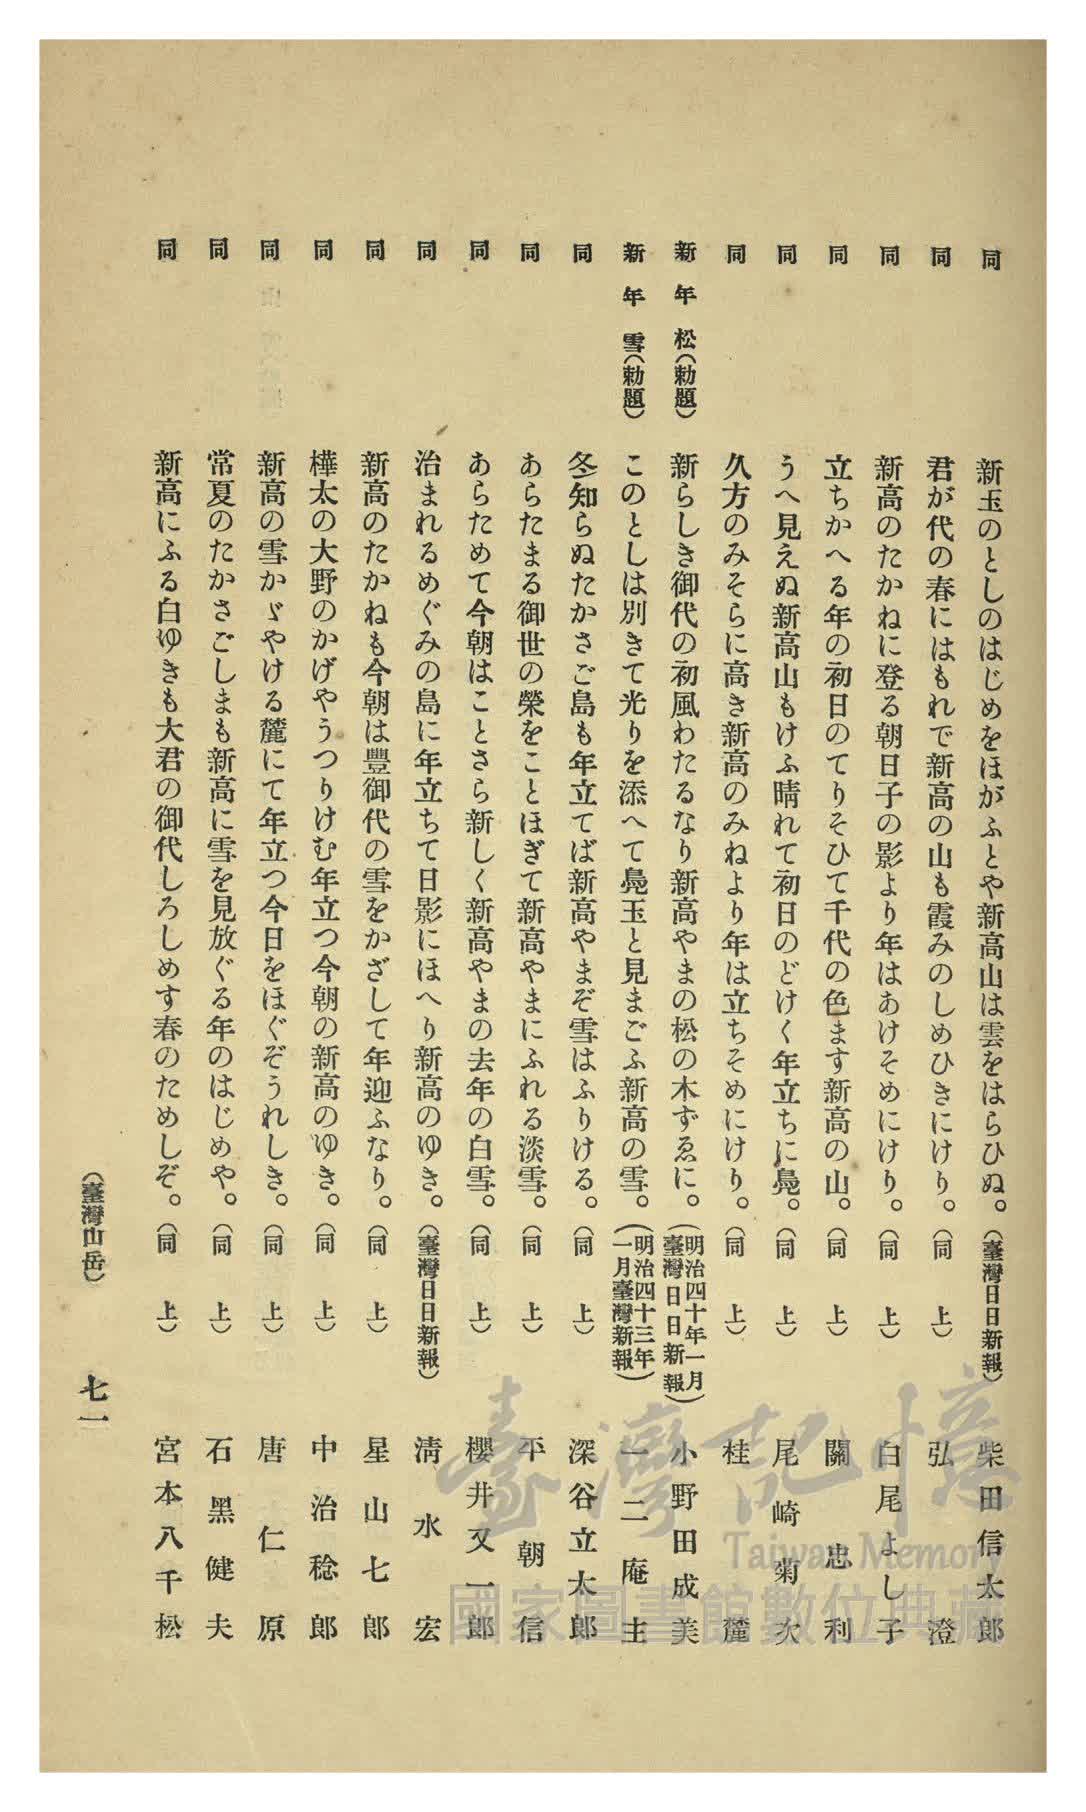 同　新玉のとしのはじめをほがふとや新高山は雲をはらひぬ。（臺灣日日新報）　柴田信太郎
同　君が代の春にはもれで新高の山も霞みのしめひきにけり。（同上）　弘澄
同　新高のたかねに登る朝日子の影より年はあけそめにけり。（同上）　白尾よし子
同　立ちかへる年の初日のてりそひて千代の色ます新高の山。（同上）　關忠利
同　うへ見えぬ新高山もけふ晴れて初日のどけく年立ちに鳧。（同上）　尾崎菊次
同　久方のみそらに高き新高のみねより年は立ちそめにけり。（同上）　桂麓
新年松（勅題）　新らしき御代の初風わたるなり新高やまの松の木ずゑに。（明治四十年一月臺灣日日新報）　小野田成美
新年雪（勅題）　このとしは別きて光りを添へて鳧玉と見まごふ新高の雪。（明治四十三年一月臺灣新報）　一二庵主
同　冬知らぬたかさご島も年立てば新高やまぞ雪はふりける。（同上）　深谷立太郎
同　あらたまる御世の榮をことほぎて新高やまにふれる淡雪。（同上）　平朝信
同　あらためて今朝はことさら新しく新高やまの去年の白雪。（同上）　櫻井又一郎
同　治まれるめぐみの島に年立ちて日影にほへり新高のゆき。（臺灣日日新報）　淸水宏
同　新高のたかねも今朝は豐御代の雪をかざして年迎ふなり。（同上）　星山七郎
同　樺太の大野のかげやうつりけむ年立つ今朝の新高のゆき。（同上）　中治稔郎
同　新高の雪かゞやける麓にて年立つ今日をほぐぞうれしき。（同上）　唐仁原
同　常夏のたかさごしまも新高に雪を見放ぐる年のはじめや。（同上）　石黑健夫
同　新高にふる白ゆきも大君の御代しろしめす春のためしぞ。（同上）　宮本八千松
（臺灣山岳）　七一
臺灣記憶
Taiwan Memory
國家圖書館數位典藏